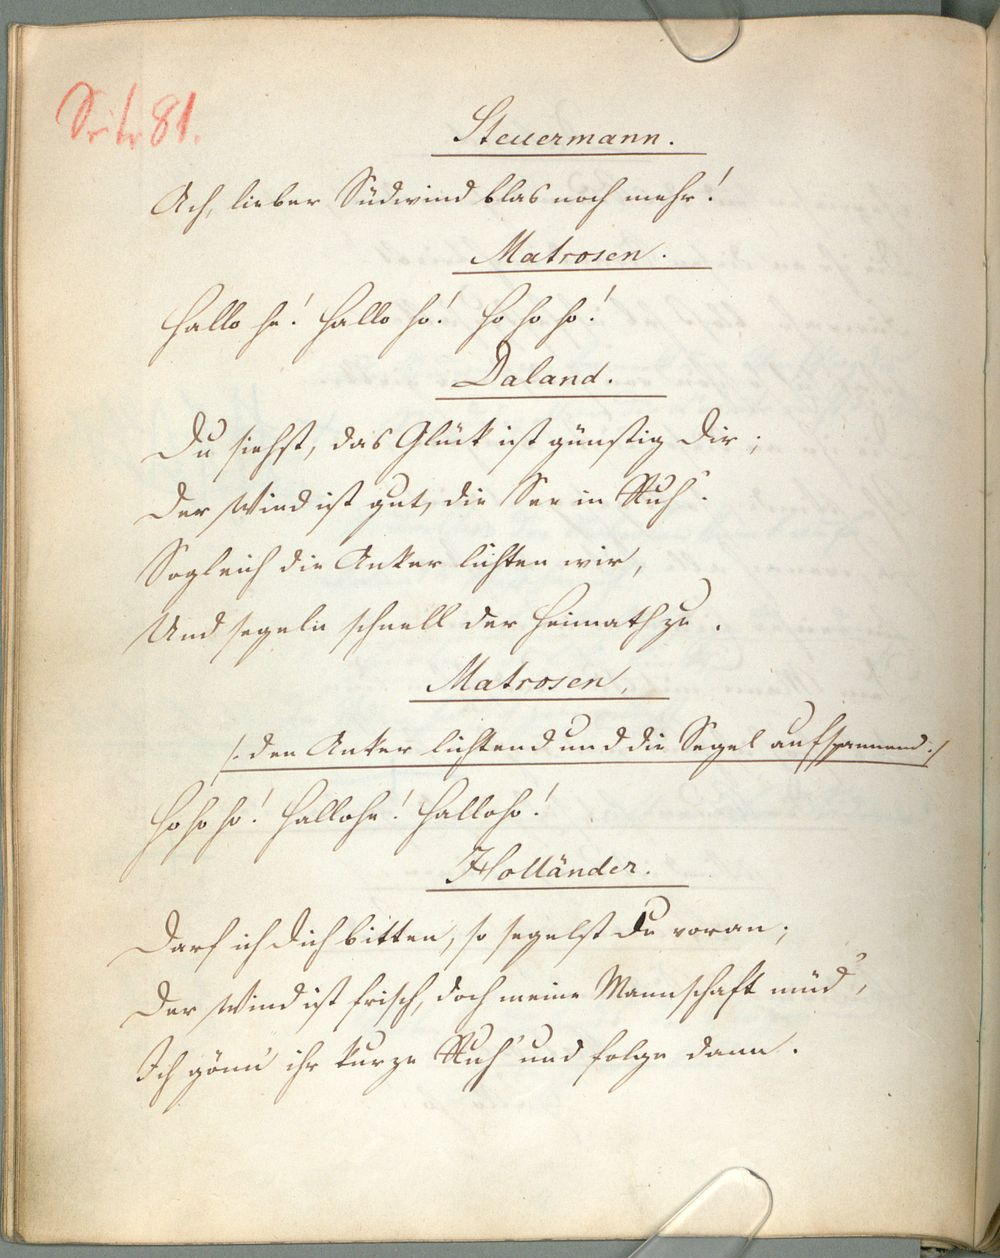 Seite 81.
Steuermann.
Ach, lieber Südwind blas noch mehr!
Matrosen.
Hallo he! Hallo ho! Ho ho ho!
Daland.
Du siehst, das Glück ist günstig Dir;
Der Wind ist gut, die See in Ruh'.
Sogleich die Anker lichten wir,
Und segeln schnell der Heimath zu.
Matrosen,
/: den Anker lichtend und die Segel aufspannend :/
Ho ho ho! Hallohe! Halloho!
Holländer.
Darf ich Dich bitten, so segelst Du voran;
Der Wind ist frisch, doch meine Mannschaft müd',
Ich gönn' ihr kurze Ruh' und folge dann.